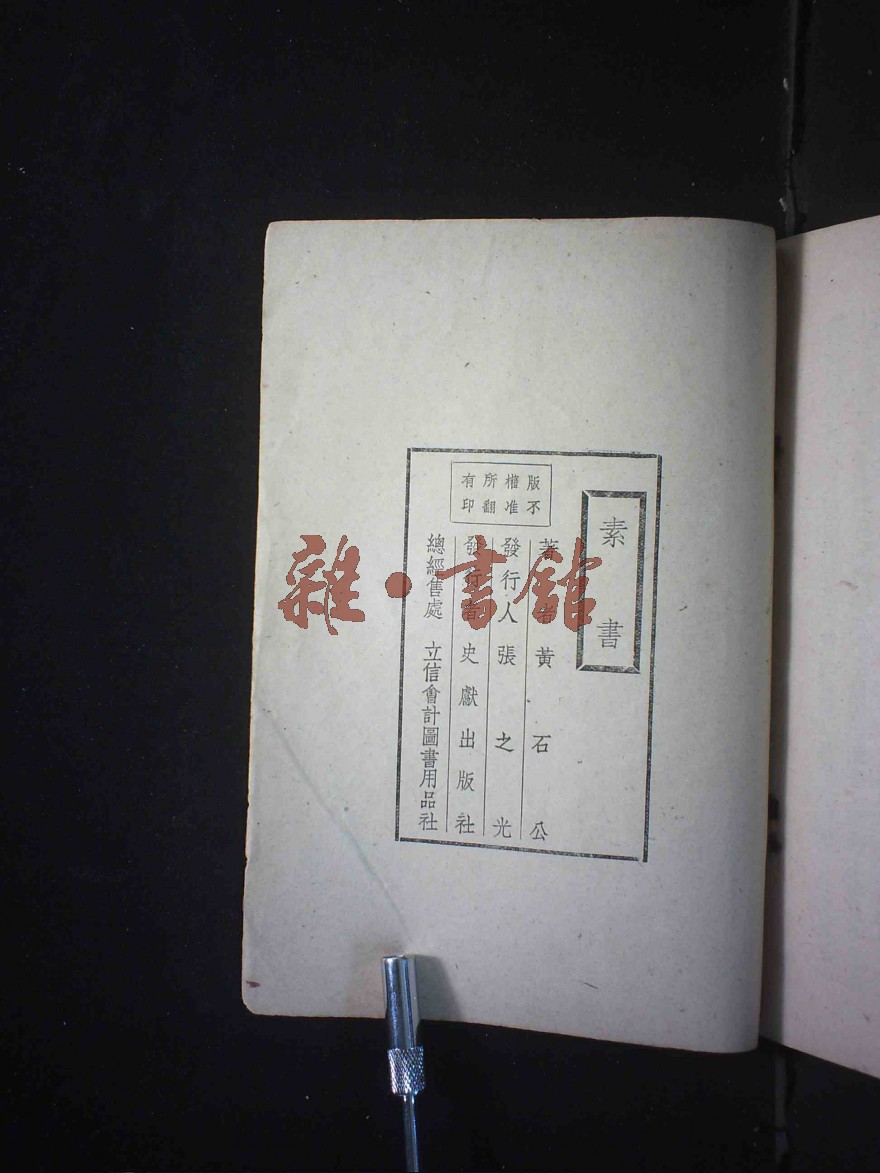 素書
著者黃石公
發行人張之光
發行者史獻出版社
總經售處 立信會計圖書用品社
版權所有
不准翻印
雜·書館